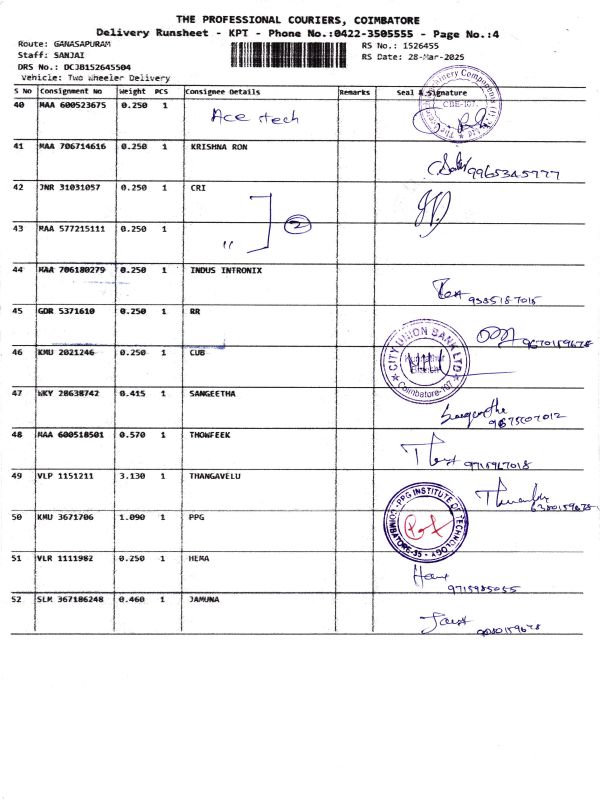 THE PROFESSIONAL COURIERS, COIMBATORE
Delivery Runsheet - KPT - Phone No.:0422-3505555 - Page No.:4
Route: GANASAPURAM
Staff: SANJAI
DRS No.: DCJB152645504
Vehicle: Two Wheeler Delivery
RS No.: 1526455
RS Date: 28-Mar-2025
S No Consignment No Weight PCS Consignee Details Remarks Seal & Signature
40 MAA 600523675 0.250 1 Ace tech
CBE-107.
41 MAA 706714616 0.250 1 KRISHNA RON
9965345777
42 JNR 31031057 0.250 1 CRI
43 MAA 577215111 0.250 1 " 2
44 MAA 706180279 0.250 1 INDUS INTRONIX
45 GDR 5371610 0.250 1 RR
9670159678
46 KMU 2021246 0.250 1 CUB
CITY UNION BANK LTD
Coimbatore-107
47 WKY 28638742 0.415 1 SANGEETHA
Sangeetha
9875507012
48 MAA 600518501 0.570 1 THOWFEEK
9715967018
49 VLP 1151211 3.130 1 THANGAVELU
6380159678
50 KMU 3671706 1.090 1 PPG
PPG INSTITUTE OF TECHNOLOGY
COIMBATORE-35
51 VLR 1111982 0.250 1 HEMA
9715985055
52 SLM 367186248 0.460 1 JAMUNA
9080159678